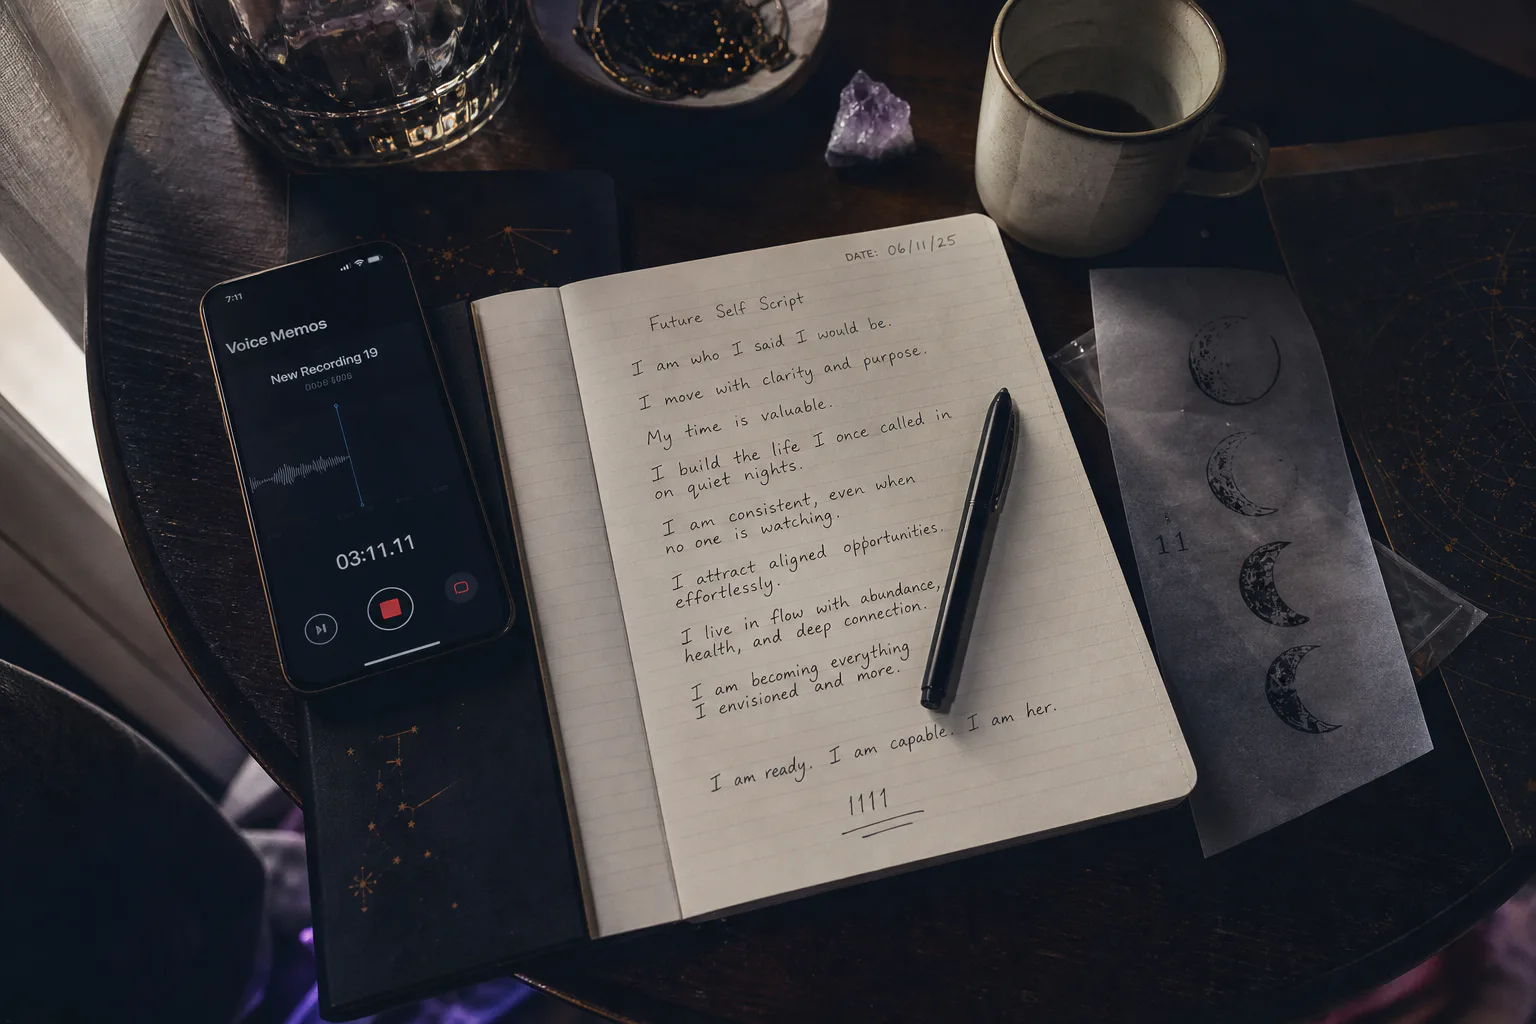 7:11
Voice Memos
New Recording 19
03:11.11
DATE: 06/11/25
Future Self Script
I am who I said I would be.
I move with clarity and purpose.
My time is valuable.
I build the life I once called in
on quiet nights.
I am consistent, even when
no one is watching.
I attract aligned opportunities.
effortlessly.
I live in flow with abundance,
health, and deep connection.
I am becoming everything
I envisioned and more.
I am ready. I am capable. I am her.
1111
11